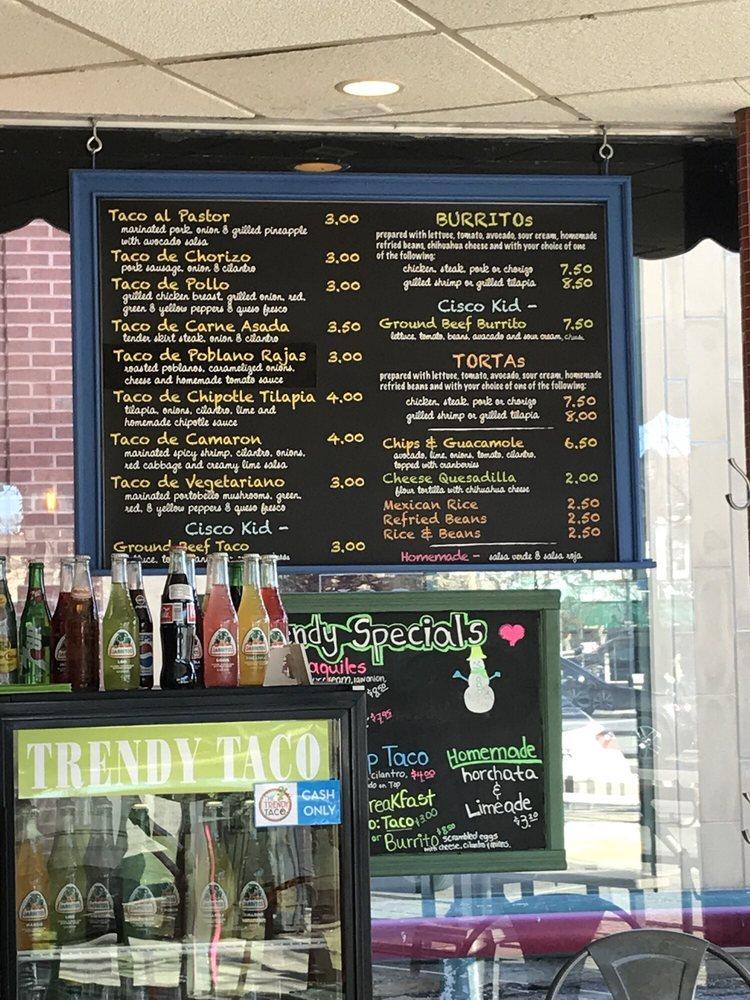 Taco al Pastor 3.00
marinated pork, onion & grilled pineapple
with avocado salsa
Taco de Chorizo 3.00
pork sausage, onion & cilantro
Taco de Pollo 3.00
grilled chicken breast, grilled onion, red,
green & yellow peppers & queso fresco
Taco de Carne Asada 3.50
tender skirt steak, onion & cilantro
Taco de Poblano Rajas 3.00
roasted poblanos, caramelized onions,
cheese and homemade tomato sauce
Taco de Chipotle Tilapia 4.00
tilapia, onions, cilantro, lime and
homemade chipotle sauce
Taco de Camaron 4.00
marinated spicy shrimp, cilantro, onions,
red cabbage and creamy lime salsa
Taco de Vegetariano 3.00
marinated portobello mushrooms, green,
red, & yellow peppers & queso fresco
Cisco Kid -
Ground Beef Taco 3.00
BURRITOs
prepared with lettuce, tomato, avocado, sour cream, homemade
refried beans, chihuahua cheese and with your choice of one
of the following:
chicken, steak, pork or chorizo 7.50
grilled shrimp or grilled tilapia 8.50
Cisco Kid -
Ground Beef Burrito 7.50
lettuce, tomato, beans, avocado and sour cream, cheese
TORTAs
prepared with lettuce, tomato, avocado, sour cream, homemade
refried beans and with your choice of one of the following:
chicken, steak, pork or chorizo 7.50
grilled shrimp or grilled tilapia 8.00
Chips & Guacamole 6.50
avocado, lime, onions, tomato, cilantro,
topped with cranberries
Cheese Quesadilla 2.00
flour tortilla with chihuahua cheese
Mexican Rice 2.50
Refried Beans 2.50
Rice & Beans 2.50
Homemade - salsa verde & salsa roja
ndy Specials
aquiles
$8.50
$7.95
p Taco
cilantro, $4.00
do on Top
reakfast
o: Taco $3.00
or Burrito $8.50
scrambled eggs
with cheese, cilantro & onions.
Homemade
horchata
&
Limeade
$3.20
TRENDY TACO
THE
TRENDY
TACO
CASH
ONLY
JARRITOS
JARRITOS
JARRITOS
JARRITOS
7up
pepsi